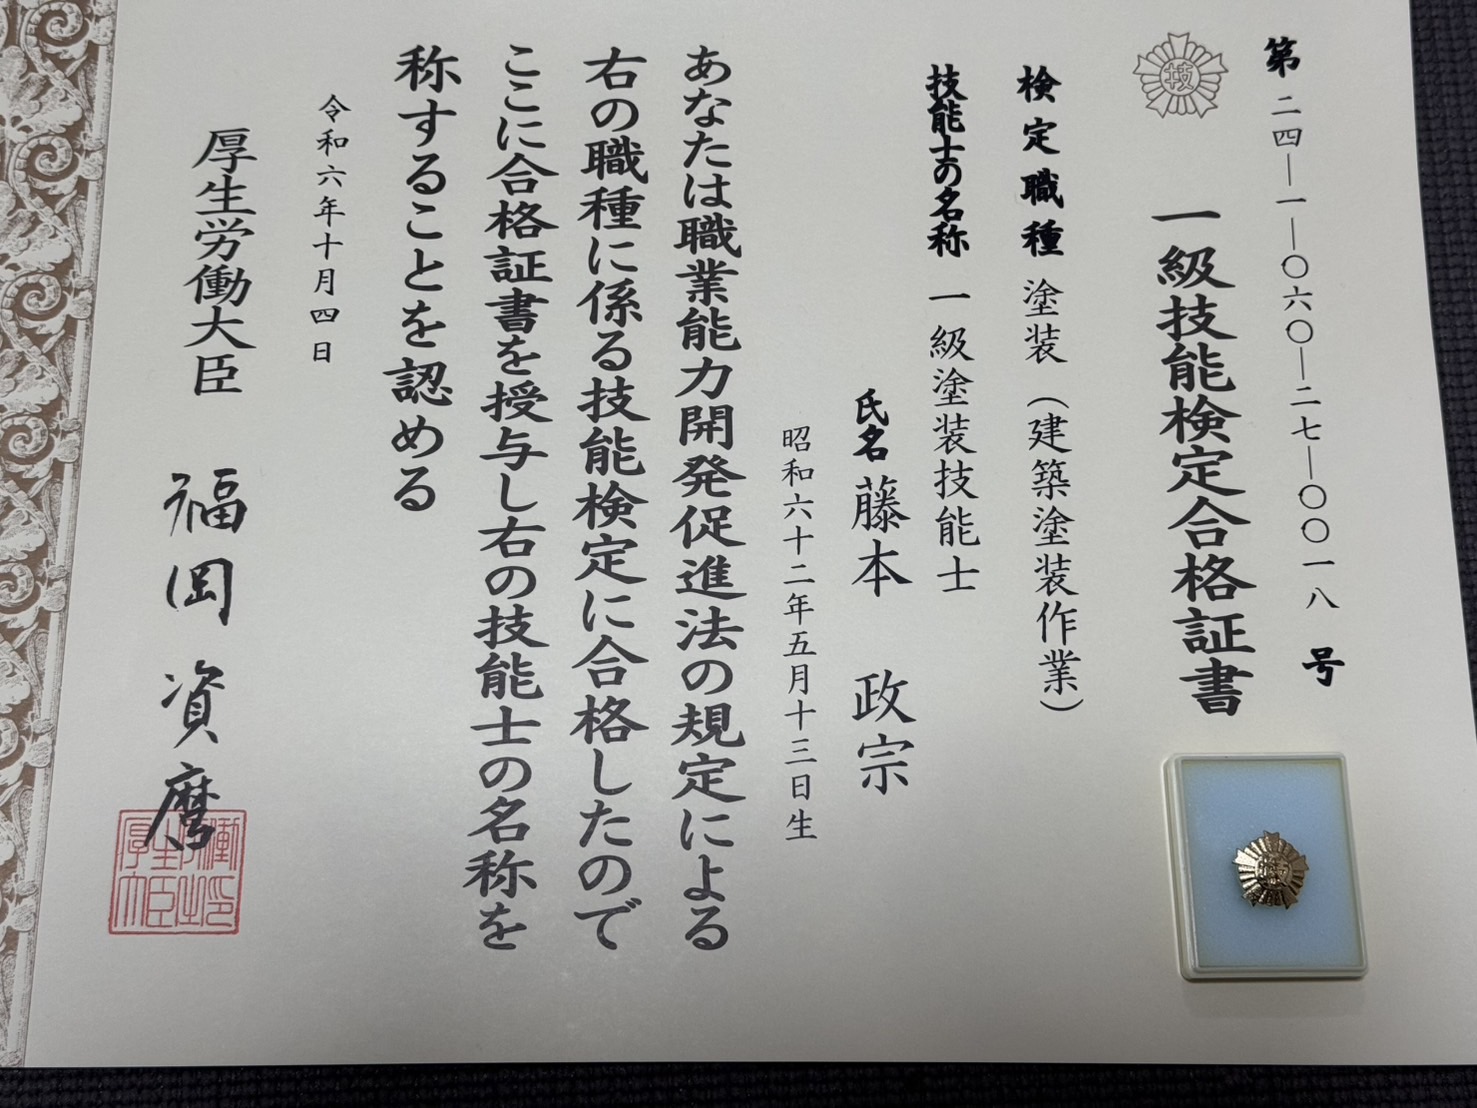 第二四―一―〇六〇―二七―〇〇一八号
技
一級技能検定合格証書
検定職種 塗装（建築塗装作業）
技能士の名称 一級塗装技能士
氏名 藤本 政宗
昭和六十二年五月十三日生
あなたは職業能力開発促進法の規定による
右の職種に係る技能検定に合格したので
ここに合格証書を授与し右の技能士の名称を
称することを認める
令和六年十月四日
厚生労働大臣 福岡資麿